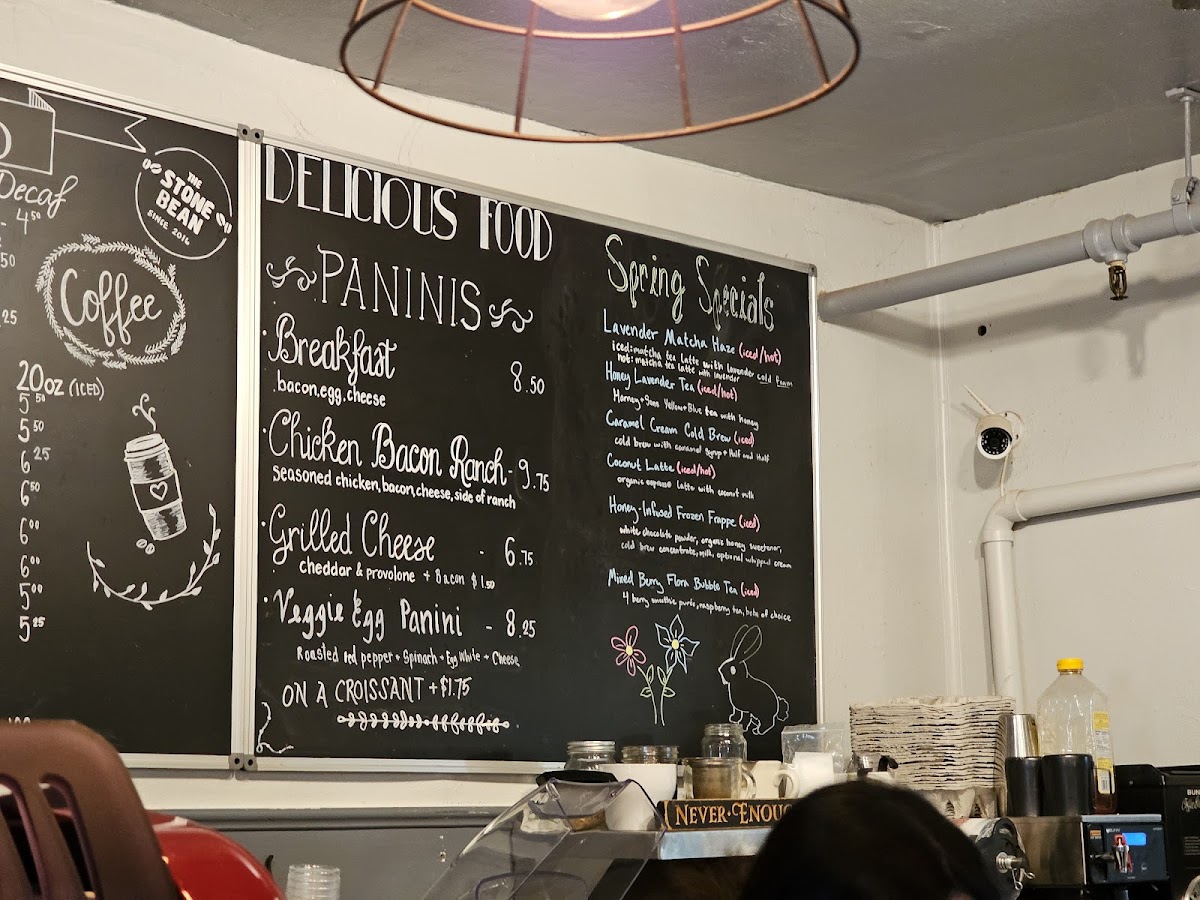 Decaf
4.50
THE
STONE
BEAN
SINCE 2016
Coffee
20oz (ICED)
5.50
5.50
6.25
6.50
6.00
6.00
5.00
5.25
DELICIOUS FOOD
PANINIS
Breakfast 8.50
bacon, egg, cheese
Chicken Bacon Ranch - 9.75
seasoned chicken, bacon, cheese, side of ranch
Grilled Cheese - 6.75
cheddar & provolone + Bacon $1.50
Veggie Egg Panini - 8.25
Roasted red pepper + Spinach + Egg White + Cheese
ON A CROISSANT + $1.75
Spring Specials
Lavender Matcha Haze (iced/hot)
iced: matcha tea latte with lavender cold foam
hot: matcha tea latte with lavender
Honey Lavender Tea (iced/hot)
Harney + Sons Yellow + Blue tea with honey
Caramel Cream Cold Brew (iced)
cold brew with caramel syrup + Half and Half
Coconut Latte (iced/hot)
organic espresso latte with coconut milk
Honey-Infused Frozen Frappe (iced)
white chocolate powder, organic honey sweetener,
cold brew concentrate, milk, optional whipped cream
Mixed Berry Flora Bubble Tea (iced)
4 berry smoothie purée, raspberry tea, boba of choice
NEVER ENOU
BUN